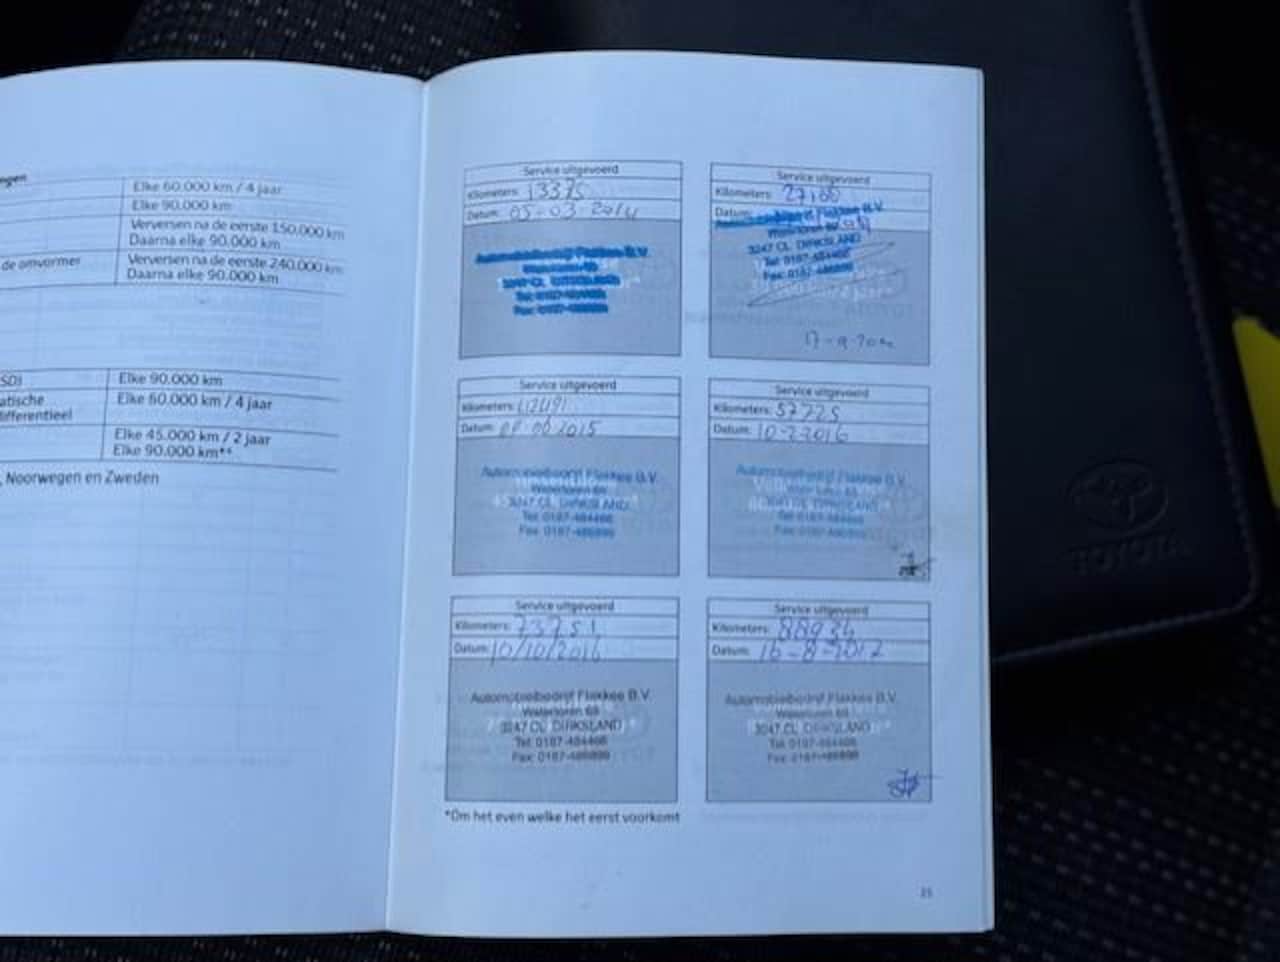 Elke 60.000 km / 4 jaar
Elke 90.000 km
Verversen na de eerste 150.000 km
Daarna elke 90.000 km
de omvormer
Verversen na de eerste 240.000 km
Daarna elke 90.000 km
Elke 90.000 km
atische
ifferentieel
Elke 60.000 km / 4 jaar
Elke 45.000 km / 2 jaar
Elke 90.000 km**
, Noorwegen en Zweden
Service uitgevoerd
Kilometers: 13375
Datum: 05-03-2014
Automobielbedrijf Flakkee B.V.
3247 CL DIRKSLAND
Tel: 0187-484466
Fax: 0187-486899
Service uitgevoerd
Kilometers:
Datum:
Automobielbedrijf Flakkee B.V.
3247 CL DIRKSLAND
Tel: 0187-484466
Fax: 0187-486899
Service uitgevoerd
Kilometers:
Datum:
Automobielbedrijf Flakkee B.V.
3247 CL DIRKSLAND
Tel: 0187-484466
Fax: 0187-486899
Service uitgevoerd
Kilometers: 57725
Datum: 10-2-2016
Automobielbedrijf Flakkee B.V.
3247 CL DIRKSLAND
Tel: 0187-484466
Fax: 0187-486899
Service uitgevoerd
Kilometers: 73751
Datum: 10/10/2016
Automobielbedrijf Flakkee B.V.
3247 CL DIRKSLAND
Tel: 0187-484466
Fax: 0187-486899
Service uitgevoerd
Kilometers: 88934
Datum: 16-8-2017
Automobielbedrijf Flakkee B.V.
3247 CL DIRKSLAND
Tel: 0187-484466
Fax: 0187-486899
*Om het even welke het eerst voorkomt
TOYOTA